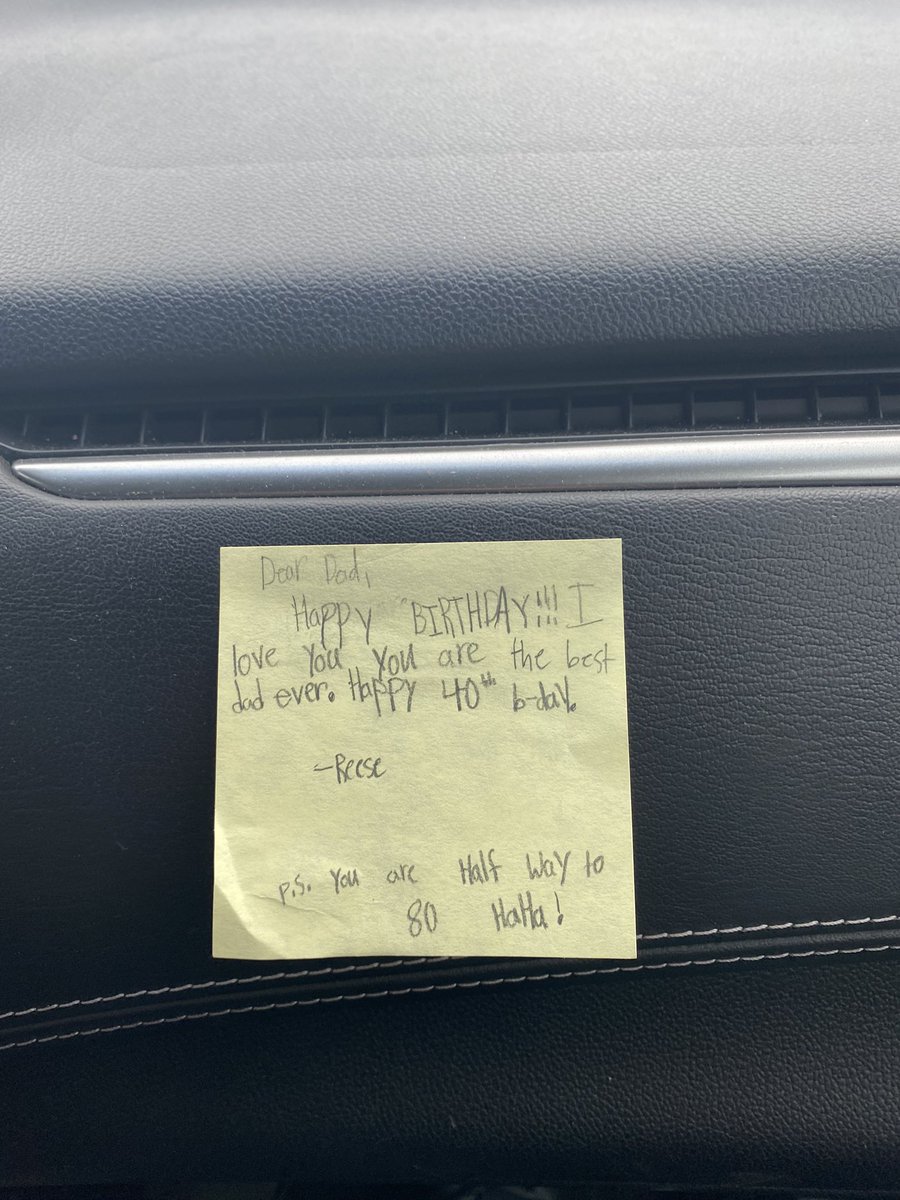 Dear Dad,
Happy BIRTHDAY!!! I
love you you are the best
dad ever. Happy 40th b-day.
-Reese
p.s. you are Half way to
80 HaHa!